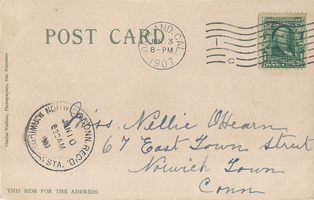 POST CARD
OAKLAND, CAL.
8-PM
1907
1
C
Charles Weidner, Photographer, San Francisco
NORWICH TOWN CONN. REC'D.
JAN 10
830AM
1907
STA.
Miss Nellie O'Hearn
67 East Town Street
Norwich Town
Conn
THIS SIDE FOR THE ADDRESS.